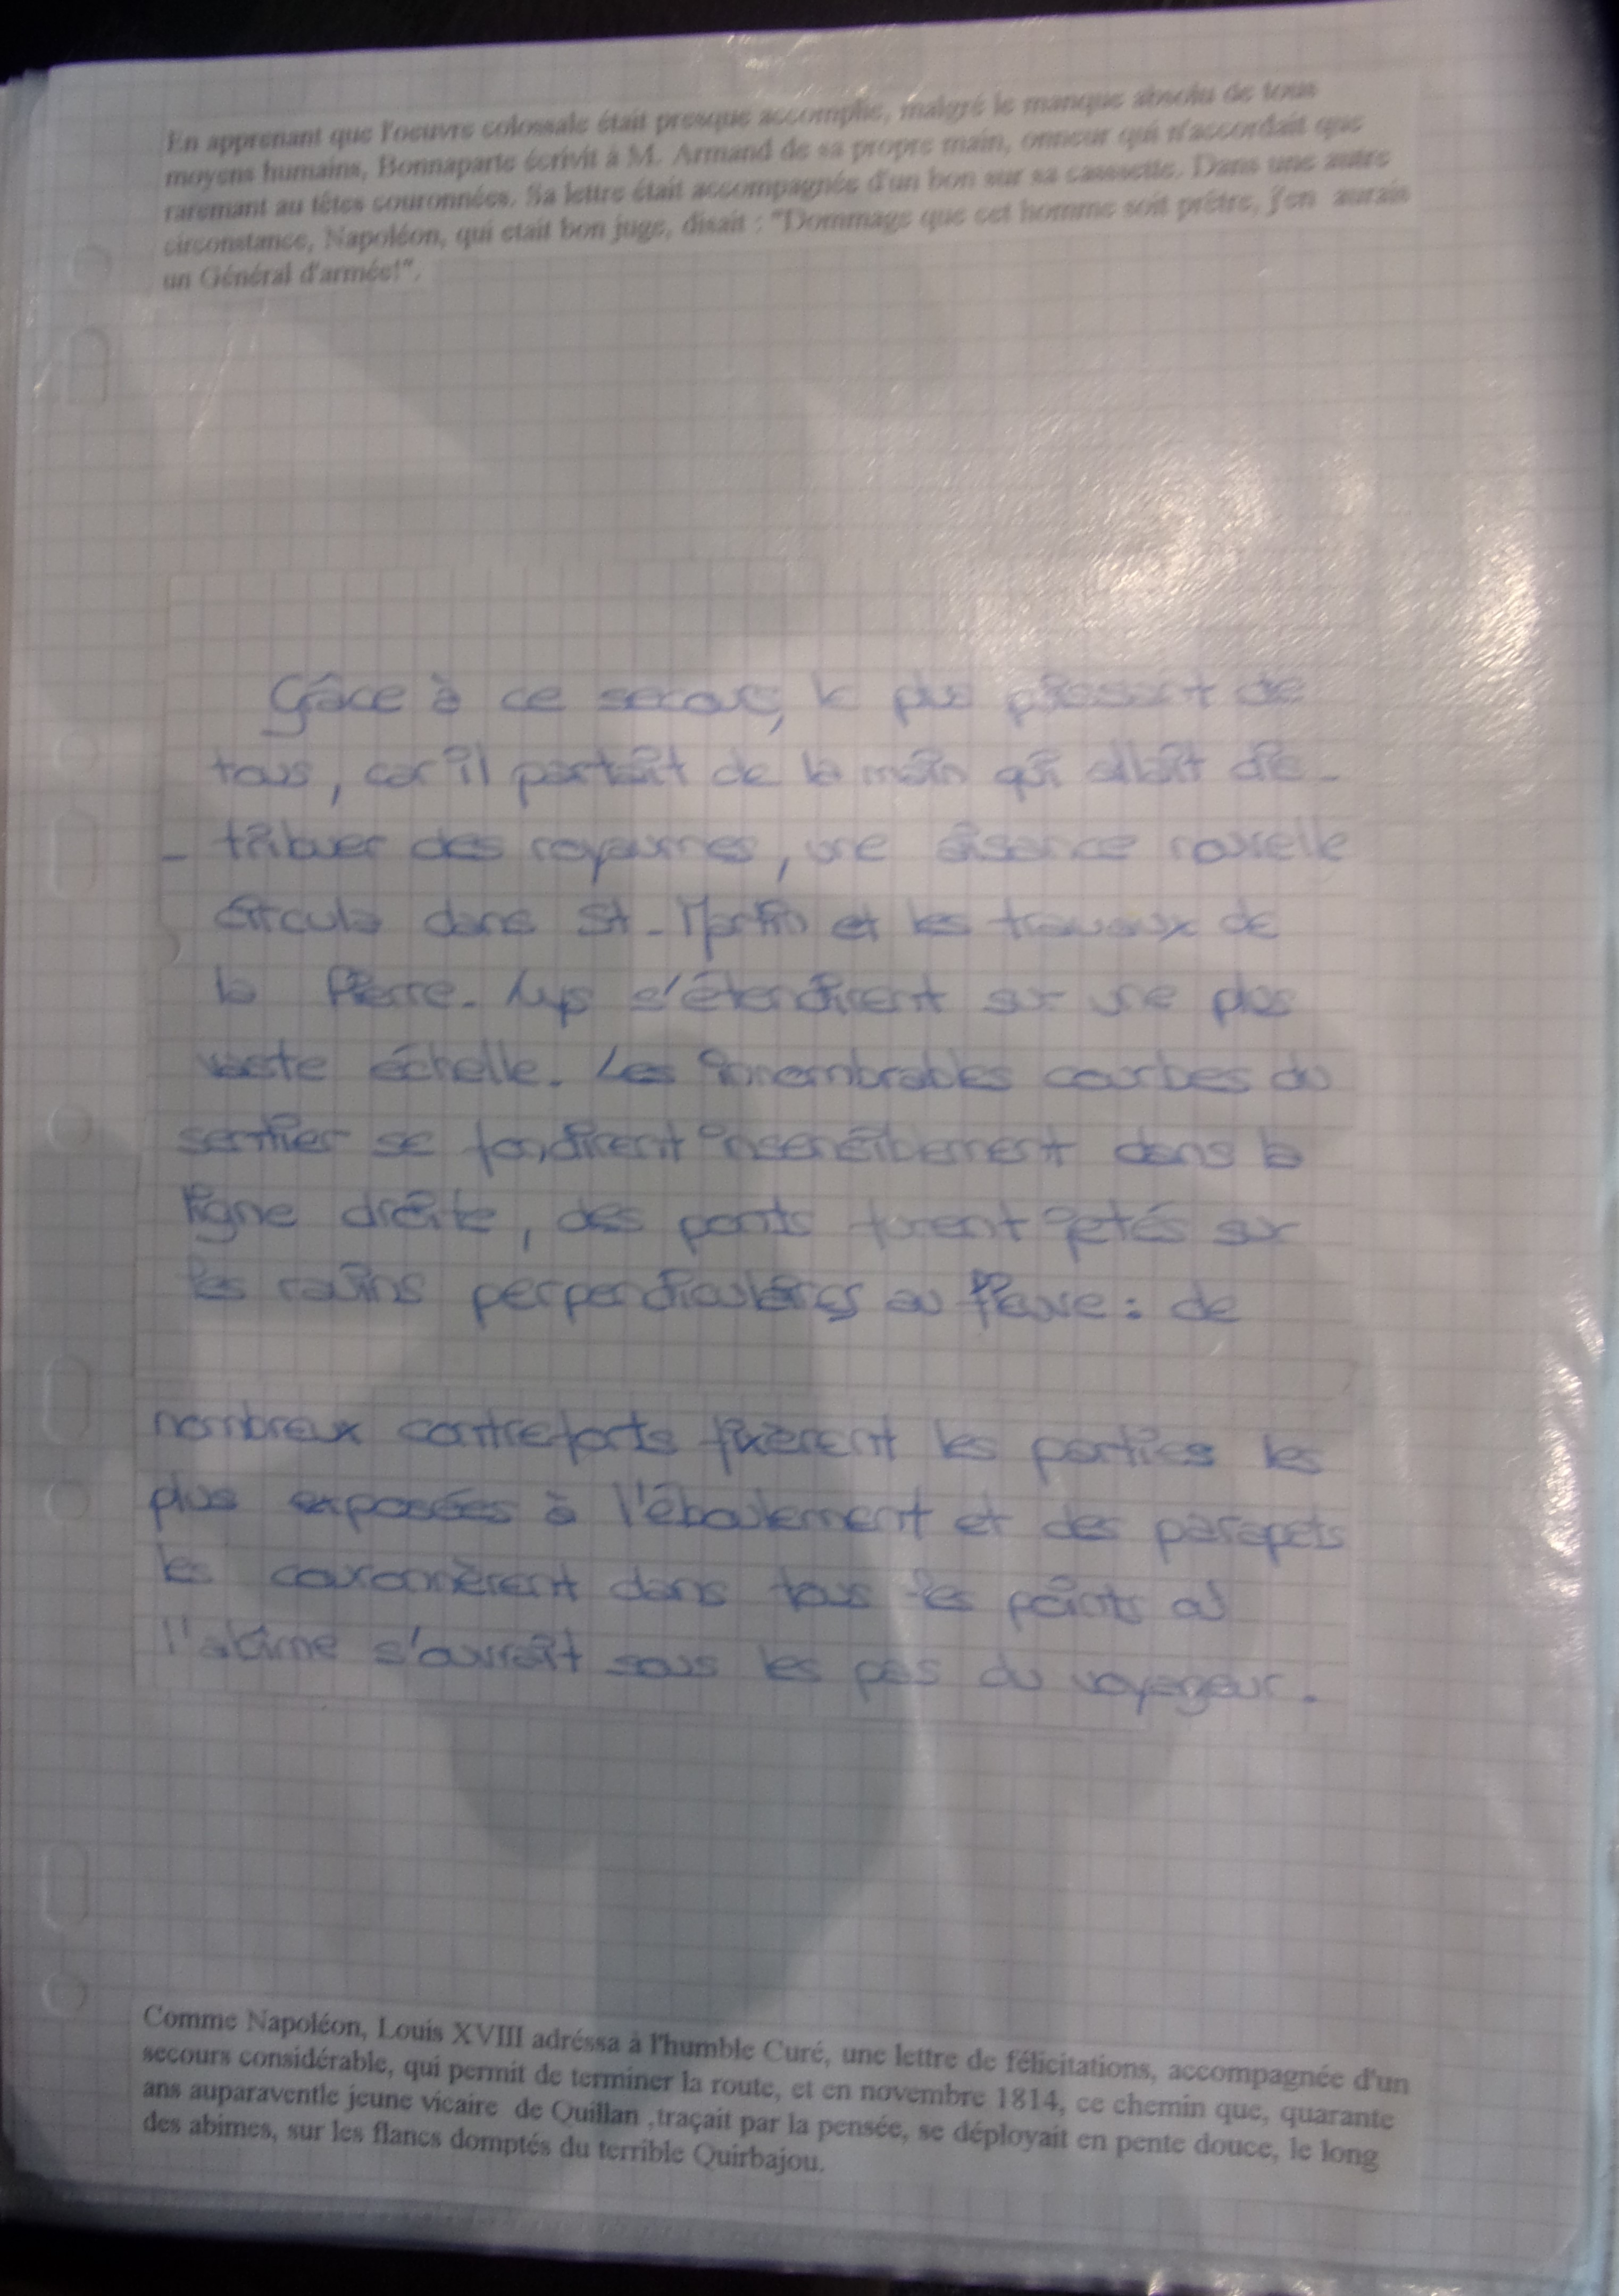 En apprenant que l'oeuvre colossale était presque accomplie, malgré le manque absolu de tous
moyens humains, Bonnaparte écrivit à M. Armand de sa propre main, onneur qui n'accordait que
raremant au têtes couronnées. Sa lettre était accompagnée d'un bon sur sa cassette. Dans une autre
circonstance, Napoléon, qui etait bon juge, disait : "Dommage que cet homme soit prêtre, j'en aurais
un Général d'armée!".
Grâce à ce secours, le plus puissant de
tous, car il partait de la main qui allait dis-
- tribuer des royaumes, une aisance nouvelle
circula dans St-Martin et les travaux de
la Pierre-Lys s'étendirent sur une plus
vaste échelle. Les innombrables courbes du
sentier se fondirent insensiblement dans la
ligne droite, des ponts furent jetés sur
les ravins perpendiculaires au fleuve : de
nombreux contreforts fixèrent les parties les
plus exposées à l'éboulement et des parapets
les couronnèrent dans tous les points où
l'abîme s'ouvrait sous les pas du voyageur.
Comme Napoléon, Louis XVIII adréssa à l'humble Curé, une lettre de félicitations, accompagnée d'un
secours considérable, qui permit de terminer la route, et en novembre 1814, ce chemin que, quarante
ans auparaventle jeune vicaire de Quillan ,traçait par la pensée, se déployait en pente douce, le long
des abimes, sur les flancs domptés du terrible Quirbajou.